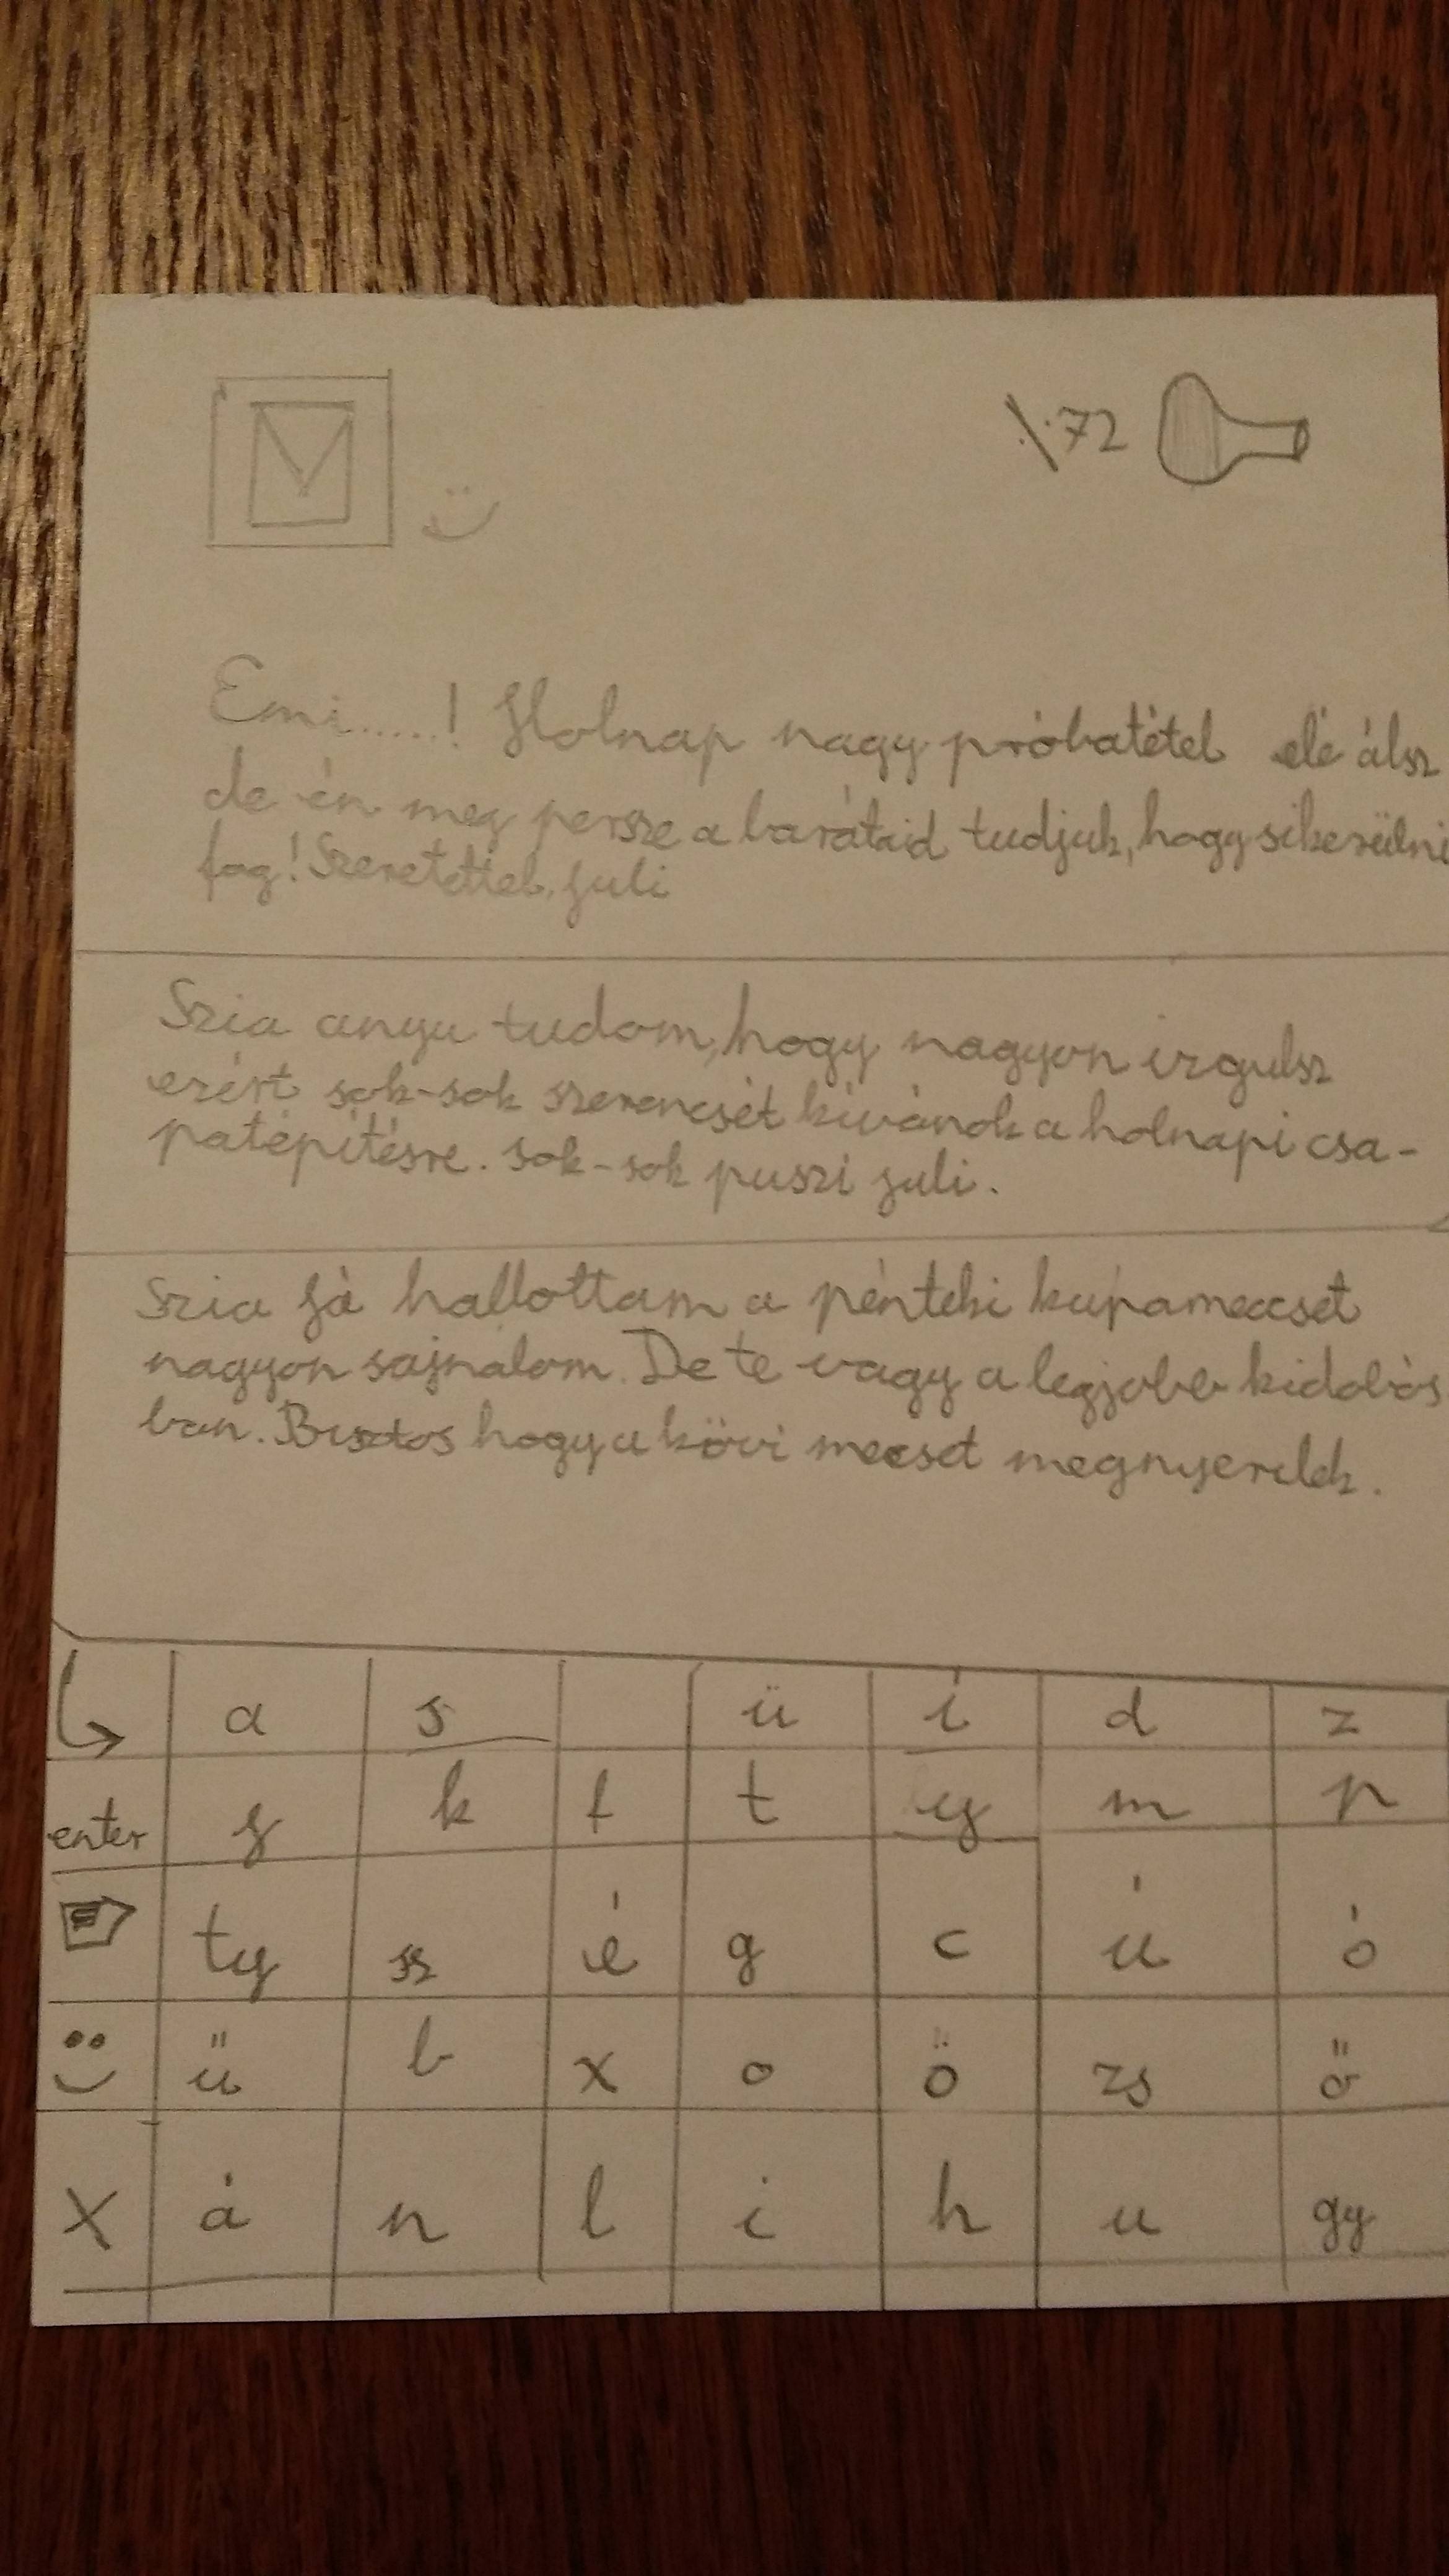 %72
Emi.....! Holnap nagy próbatétel elé álsz
de én meg persze a barátaid tudjuk, hogy sikerülni
fog! Szeretettel, Juli
Szia anyu tudom, hogy nagyon izgulsz
ezért sok-sok szerencsét kívánok a holnapi csa-
patépítésre. Sok-sok puszi Juli.
Szia hallottam a pénteki kupameccset
nagyon sajnálom. De te vagy a legjobb kidobós
ban. Bisztos hogy a kövi meccset megnyeritek.
a s ü í d z
enter j k f t y m p
ty sz é g c ú ó
ű b x o ö zs ő
X á n l i h u gy